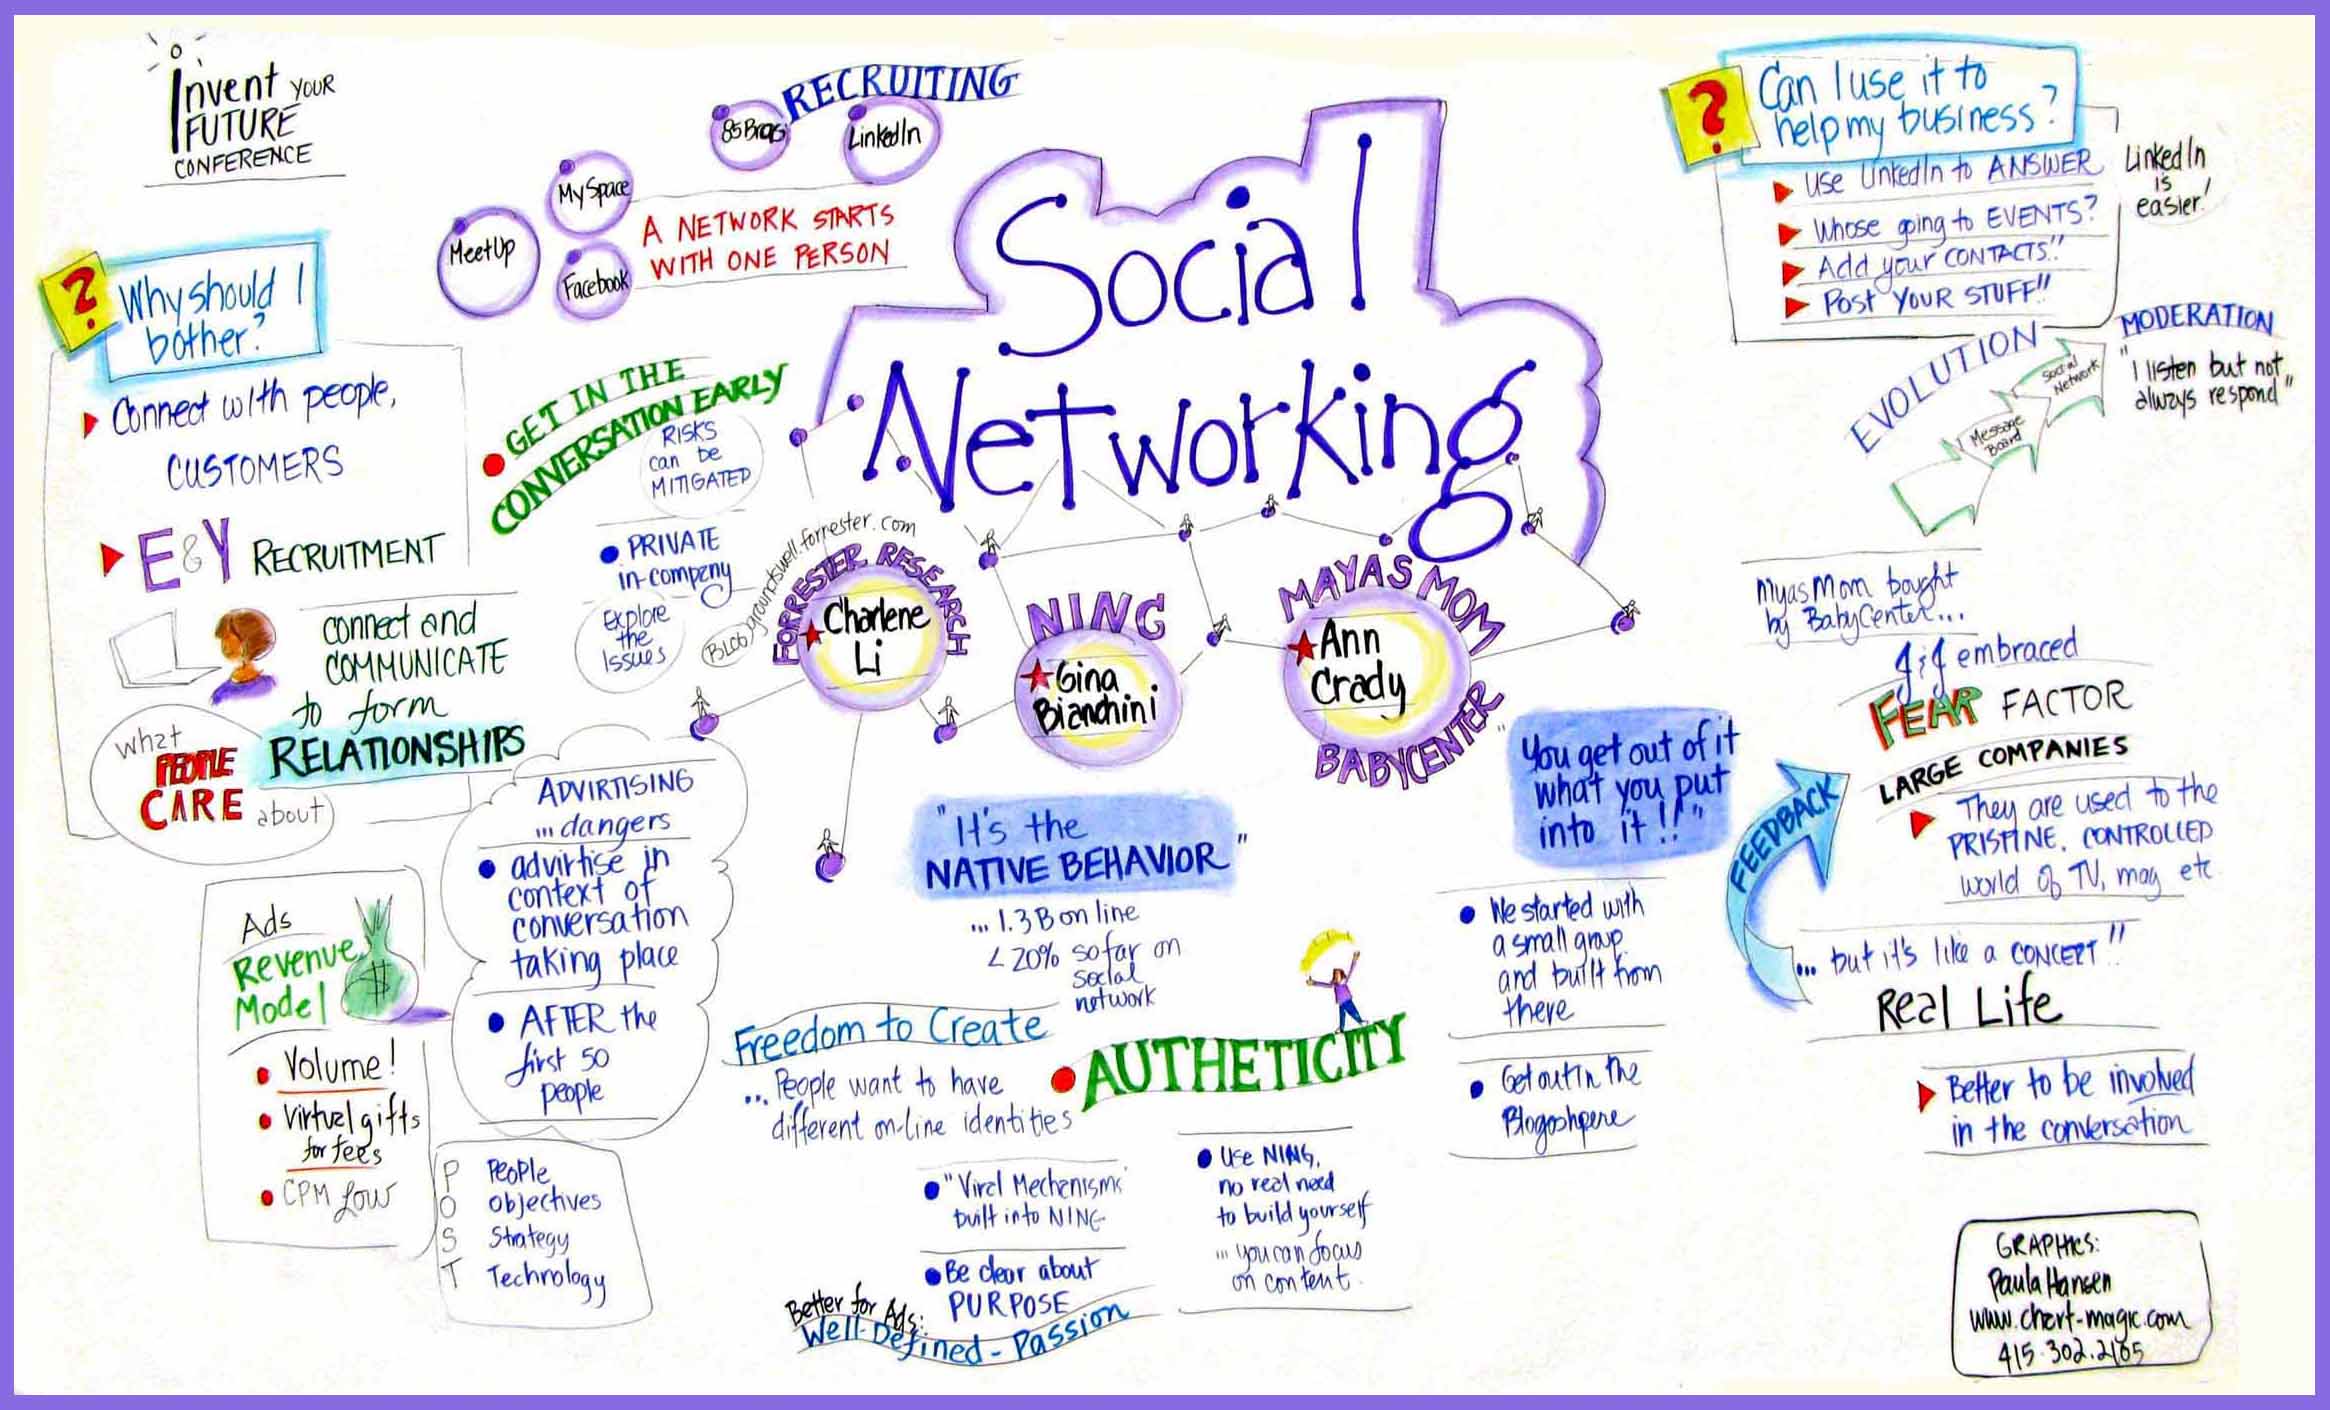 Invent YOUR
FUTURE
CONFERENCE
RECRUITING
85Broads
LinkedIn
MySpace
MeetUp
Facebook
A NETWORK STARTS
WITH ONE PERSON
Social
Networking
? Why should I
bother?
Connect with people,
CUSTOMERS
E&Y RECRUITMENT
connect and
COMMUNICATE
to form
RELATIONSHIPS
what
PEOPLE
CARE
about
GET IN THE
CONVERSATION EARLY
RISKS
can be
MITIGATED
PRIVATE
in-company
Explore
the
Issues
BLOG groundswell.forrester.com
FORRESTER RESEARCH
Charlene
Li
NING
Gina
Bianchini
MAYAS MOM
Ann
Crady
BABYCENTER
Ads
Revenue
Model
$
Volume!
Virtual gifts
for fees
CPM Low
ADVIRTISING
... dangers
advirtise in
context of
conversation
taking place
AFTER the
first 50
people
P People
O Objectives
S Strategy
T Technology
"It's the
NATIVE BEHAVIOR"
... 1.3B on line
< 20% so far on
social
network
Freedom to Create
... People want to have
different on-line identities
AUTHETICITY
"Viral Mechanisms
built into NING
Be clear about
PURPOSE
Better for Ads:
Well-Defined - Passion
Use NING,
no real need
to build yourself
... you can focus
on content.
"You get out of it
what you put
into it!!"
We started with
a small group
and built from
there
Get out in the
Blogoshpere
? Can I use it to
help my business?
Use LinkedIn to ANSWER
Whose going to EVENTS?
Add your CONTACTS!!
Post YOUR STUFF!!
LinkedIn
is
easier!
EVOLUTION
Message
Board
Social
Network
MODERATION
"I listen but not
always respond"
MyasMom bought
by BabyCenter...
J&J embraced
FEAR FACTOR
LARGE COMPANIES
They are used to the
PRISTINE, CONTROLLED
world of TV, mag etc
FEEDBACK
... but it's like a CONCEPT!!
Real Life
Better to be involved
in the conversation
GRAPHICS:
Paula Hansen
www.chart-magic.com
415.302.2105